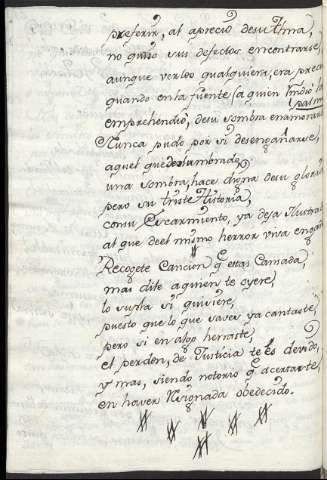 preferir, al aprecio desu Alma,
no quiso sus defectos encontrarse,
aunque verlos qualquiera, era preci
quando enla fuente (a quien rindio la
palma
emprehendio, desu sombra enamorars
Nunca pudo por si desengañarse,
aquel que deslumbrado
una sombra, hace digna desu gloria
pero su triste Historia,
comu Escarmiento, ya deja Ilustra
al que deel mismo herror viva enga
Recogete Cancion q estas Cansada,
mas dile aquien te oyere,
lo supla si quiviere,
puesto que lo que saves ya cantaste,
pero si en algo herraste,
el perdon, de Justicia te es devido,
y mas, siendo notorio q acertaste,
en haver Resignada obedecido.